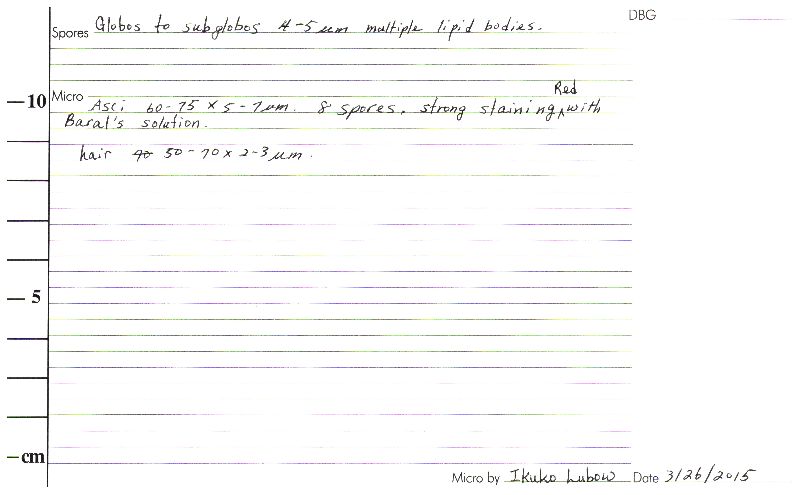 DBG
Spores Globos to subglobos 4-5 µm multiple lipid bodies.
Red
10 Micro
Asci 60-75 x 5-7 µm. 8 spores. strong staining ^ with
Baral's solution.
hair 40 50-70 x 2-3 µm.
5
cm
Micro by Ikuko Lubow Date 3/26/2015